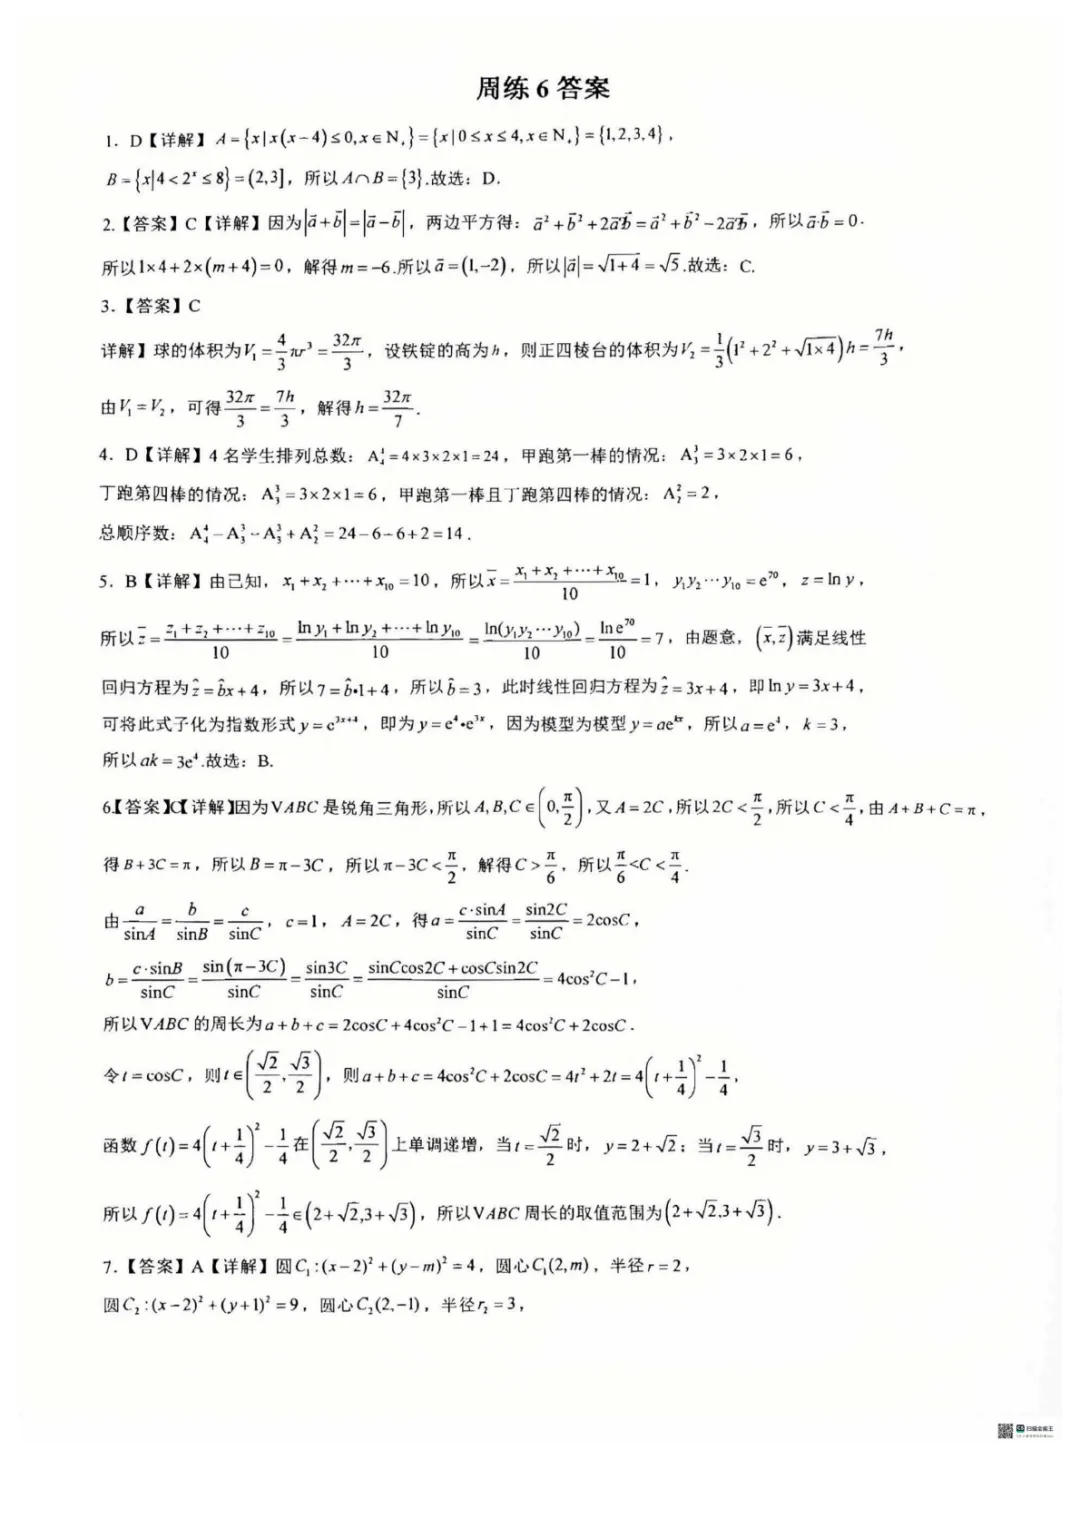 周练 6 答案
1. D【详解】A={x|x(x-4)≤0,x∈N₊}={x|0≤x≤4,x∈N₊}={1,2,3,4},
B={x|4<2ˣ≤8}=(2,3], 所以A∩B={3}.故选:D.
2.【答案】C【详解】因为|a⃗+b⃗|=|a⃗-b⃗|, 两边平方得: a⃗²+b⃗²+2a⃗b⃗=a⃗²+b⃗²-2a⃗b⃗, 所以a⃗·b⃗=0.
所以1×4+2×(m+4)=0, 解得m=-6.所以a⃗=(1,-2), 所以|a⃗|=√(1+4)=√5.故选: C.
3.【答案】C
详解】球的体积为V₁=4/3πr³=32π/3, 设铁锭的高为h, 则正四棱台的体积为V₂=1/3(1²+2²+√(1×4))h=7h/3,
由V₁=V₂, 可得32π/3=7h/3, 解得h=32π/7.
4. D【详解】4 名学生排列总数: A₄⁴=4×3×2×1=24, 甲跑第一棒的情况: A₃³=3×2×1=6,
丁跑第四棒的情况: A₃³=3×2×1=6, 甲跑第一棒且丁跑第四棒的情况: A₂²=2,
总顺序数: A₄⁴-A₃³-A₃³+A₂²=24-6-6+2=14.
5. B【详解】由已知, x₁+x₂+⋯+x₁₀=10, 所以x̄=(x₁+x₂+⋯+x₁₀)/10=1, y₁y₂⋯y₁₀=e⁷⁰, z=ln y,
所以z̄=(z₁+z₂+⋯+z₁₀)/10=(ln y₁+ln y₂+⋯+ln y₁₀)/10=ln(y₁y₂⋯y₁₀)/10=ln e⁷⁰/10=7, 由题意, (x̄,z̄)满足线性
回归方程为ẑ=b̂x+4, 所以7=b̂•1+4, 所以b̂=3, 此时线性回归方程为ẑ=3x+4, 即ln y=3x+4,
可将此式子化为指数形式y=e³ˣ⁺⁴, 即为y=e⁴•e³ˣ, 因为模型为模型y=aeᵏˣ, 所以a=e⁴, k=3,
所以ak=3e⁴.故选: B.
6.【答案】C【详解】因为VABC是锐角三角形,所以A,B,C∈(0,π/2),又A=2C,所以2C<π/2,所以C<π/4,由A+B+C=π,
得B+3C=π, 所以B=π-3C, 所以π-3C<π/2, 解得C>π/6, 所以π/6<C<π/4.
由a/sinA=b/sinB=c/sinC, c=1, A=2C, 得a=c·sinA/sinC=sin2C/sinC=2cosC,
b=c·sinB/sinC=sin(π-3C)/sinC=sin3C/sinC=(sinCcos2C+cosCsin2C)/sinC=4cos²C-1,
所以VABC的周长为a+b+c=2cosC+4cos²C-1+1=4cos²C+2cosC.
令t=cosC, 则t∈(√2/2,√3/2), 则a+b+c=4cos²C+2cosC=4t²+2t=4(t+1/4)²-1/4,
函数f(t)=4(t+1/4)²-1/4在(√2/2,√3/2)上单调递增, 当t=√2/2时, y=2+√2; 当t=√3/2时, y=3+√3,
所以f(t)=4(t+1/4)²-1/4∈(2+√2,3+√3), 所以VABC周长的取值范围为(2+√2,3+√3).
7.【答案】A【详解】圆C₁:(x-2)²+(y-m)²=4, 圆心C₁(2,m), 半径r=2,
圆C₂:(x-2)²+(y+1)²=9, 圆心C₂(2,-1), 半径r₂=3,
扫描全能王